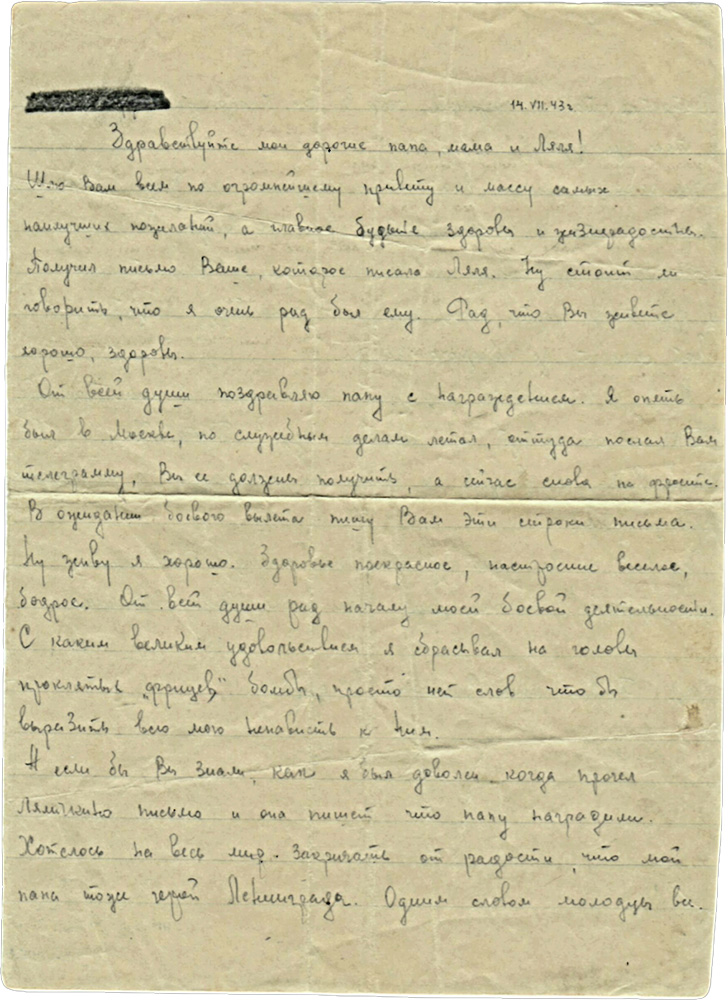 14.VII.43 г.
Здравствуйте мои дорогие папа, мама и Ляля!
Шлю Вам всем по огромнейшему привету и массу самых
наилучших пожеланий, а главное будьте здоровы и жизнерадостны.
Получил письмо Ваше, которое писала Ляля. Ну стоит ли
говорить, что я очень рад был ему. Рад, что Вы живете
хорошо, здоровы.
От всей души поздравляю папу с награждением. Я опять
был в Москве, по служебным делам летал, оттуда послал Вам
телеграмму, Вы ее должны получить, а сейчас снова на фронте.
В ожидании боевого вылета пишу Вам эти строки письма.
Ну живу я хорошо. Здоровье прекрасное, настроение веселое,
бодрое. От всей души рад началу моей боевой деятельности.
С каким великим удовольствием я сбрасывал на головы
проклятых „фрицев" бомбы, просто нет слов что бы
выразить всю мою ненависть к ним.
А если бы Вы знали, как я был доволен когда прочел
Лялечкино письмо и она пишет что папу наградили.
Хотелось на весь мир закричать от радости, что мой
папа тоже герой Ленинграда. Одним словом молодцы вы.